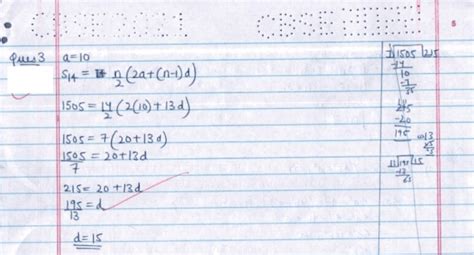 CBSE 2021 CBSE
5
Ques 3 a=10
S14 = n/2 (2a+(n-1)d)
1505 = 14/2 (2(10) + 13d)
1505 = 7 (20+13d)
1505/7 = 20+13d
215 = 20 +13d
195/13 = d
d=15
7 1505 215
14
10
-7
35
215
-20
195
13
195 15
13